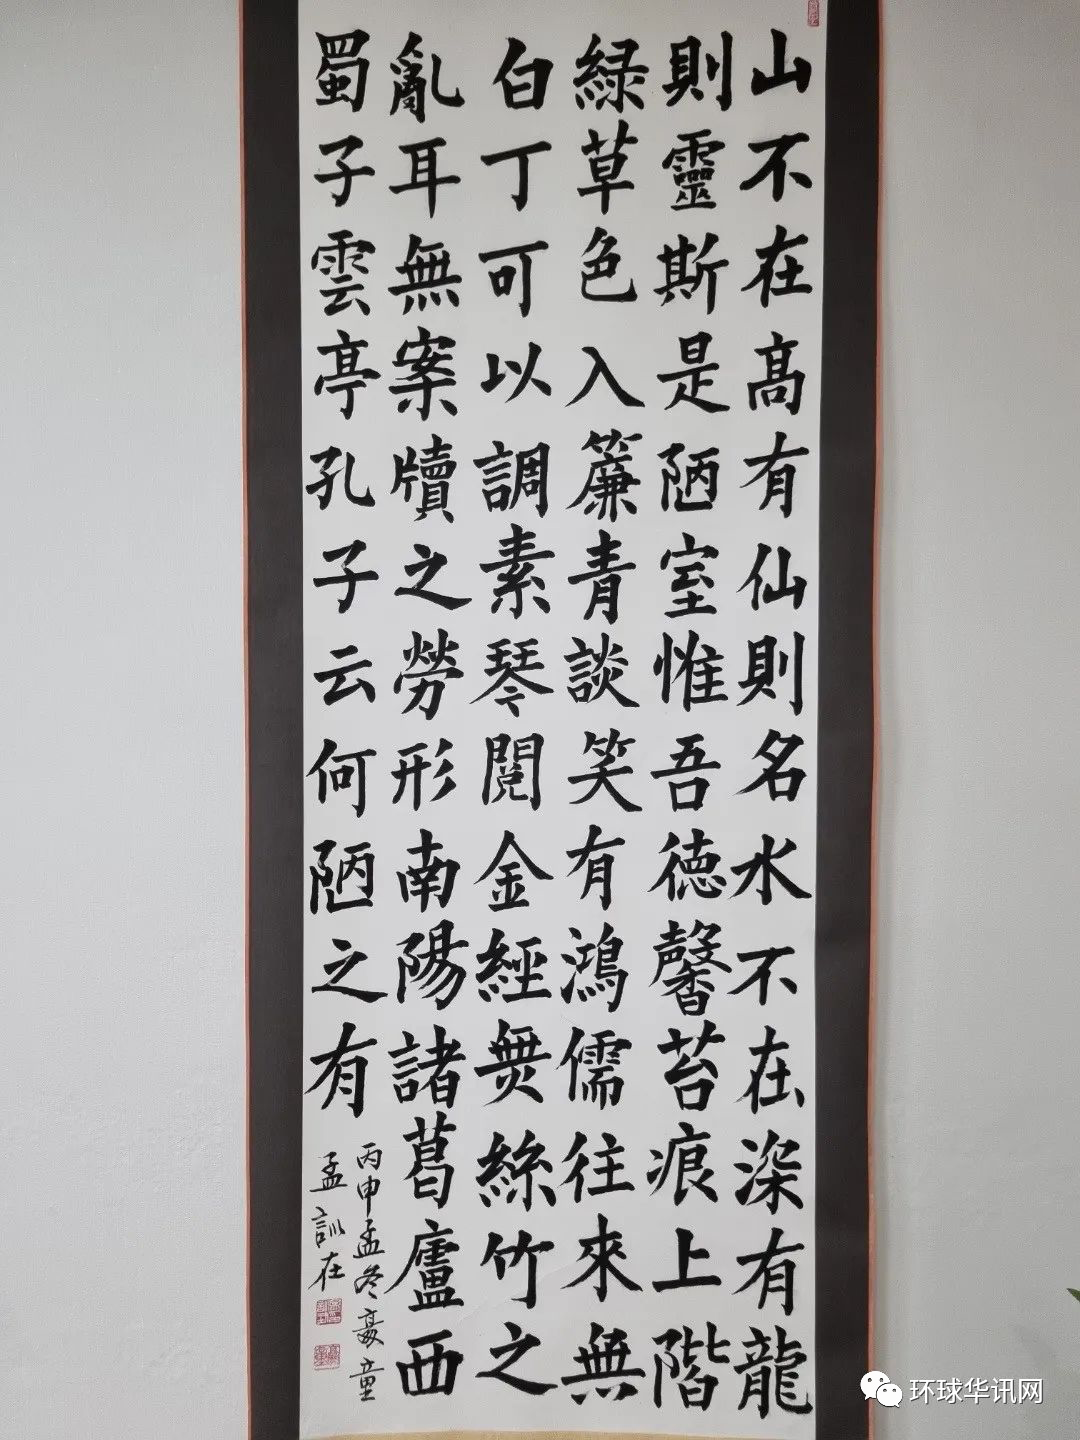 山不在高有仙則名水不在深有龍
則靈斯是陋室惟吾德馨苔痕上階
綠草色入簾青談笑有鴻儒往來無
白丁可以調素琴閱金經無絲竹之
亂耳無案牘之勞形南陽諸葛廬西
蜀子雲亭孔子云何陋之有
丙申孟冬 童
孟訓在
环球华讯网